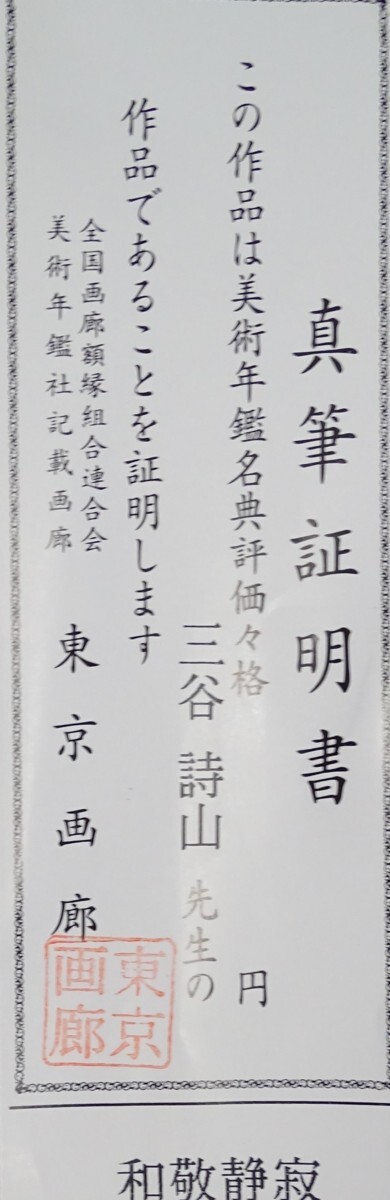 真筆証明書
この作品は美術年鑑名典評価々格 円
三谷 詩山 先生の
作品であることを証明します
全国画廊額縁組合連合会
美術年鑑社記載画廊
東京画廊
東京画廊
和敬静寂